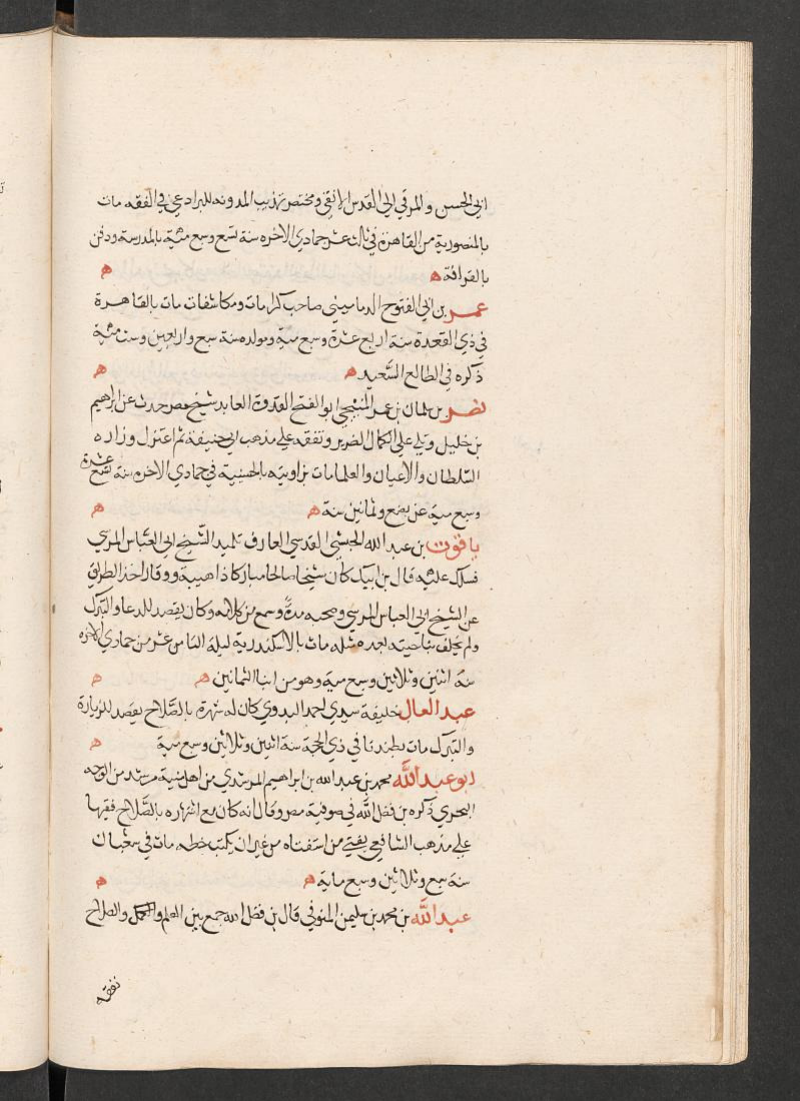 ابي الحسن والمرقي الي القدس الانقي ومختصر تهذيب المدونه للبرادعي في الفقه مات
بالمنصورية من القاهرة في ثالث عشر جمادي الاخره سنة تسع وسبع مئية بالمدرسة ودفن
بالقرافة ه ه
عمر بن ابي الفتوح الدماميني صاحب كرامات ومكاشفات مات بالقاهرة
في ذي القعدة سنة اربع عشرة وسبع مية ومولده سنة سبع واربعين وست مئية
ذكره في الطالع السعيد ه ه
نصر بن سلمان بن عمر المنبجي ابو الفتح القدوة العابد شيخ مصر حدث عن ابراهيم
بن خليل وتلي علي الكمال الضرير وتفقه علي مذهب ابي حنيفة ثم اعتزل وزاره
السلطان والاعيان والعلما مات بزاويته بالحسنية في جمادي الاخره سنة تسع عشرة
وسبع مية عن بضع وثمانين سنة ه ه
ياقوت بن عبد الله الحبشي القدسي العارف تلميد الشيخ ابي العباس المرسي
فسلك عليه قال بن ايبك كان شيخا صالحا مباركا ذا هيبة ووقار اخذ الطريق
عن الشيخ ابي العباس المرسي وصحبه مدة وسمع من كلامه وكان يقصد للدعا والتبرك
ولم يخلف بناحيته احد مثله مات بالاسكندرية ليلة الثامن عشر من جمادي الاخره
سنة اثنين وثلاثين وسبع مية وهو من ابنا الثمانين ه ه
عبد العال خليفة سيدي احمد البدوي كان له شهرة بالصلاح يقصد للزيارة
والتبرك مات بطندتا في ذي الحجة سنة اثنين وثلاثين وسبع مية ه
ابو عبد الله محمد بن عبد الله بن ابراهيم المرشدي من اهل منية مرشد من الوجه
البحري ذكره بن فضل الله في صوفية مصر وقال انه كان مع اشتهاره بالصلاح فقيها
علي مذهب الشافعي يفتي من استفتاه من غير ان يكتب خطه مات في شعبان
سنة سبع وثلاثين وسبع ماية ه ه
عبد الله بن محمد بن سليمن المنوفي قال بن فضل الله جمع بين العلم والعمل والصلاح
تفقه